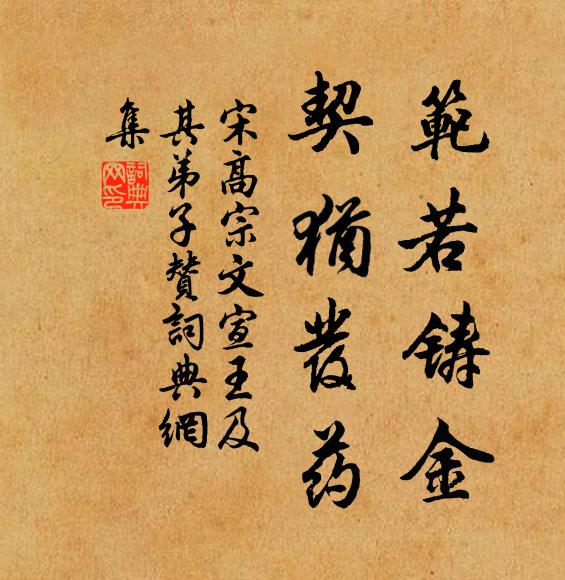 範若铸金
契猶發药
宋高宗文宣王及
其弟子贊詞典網
集
詞典
网印